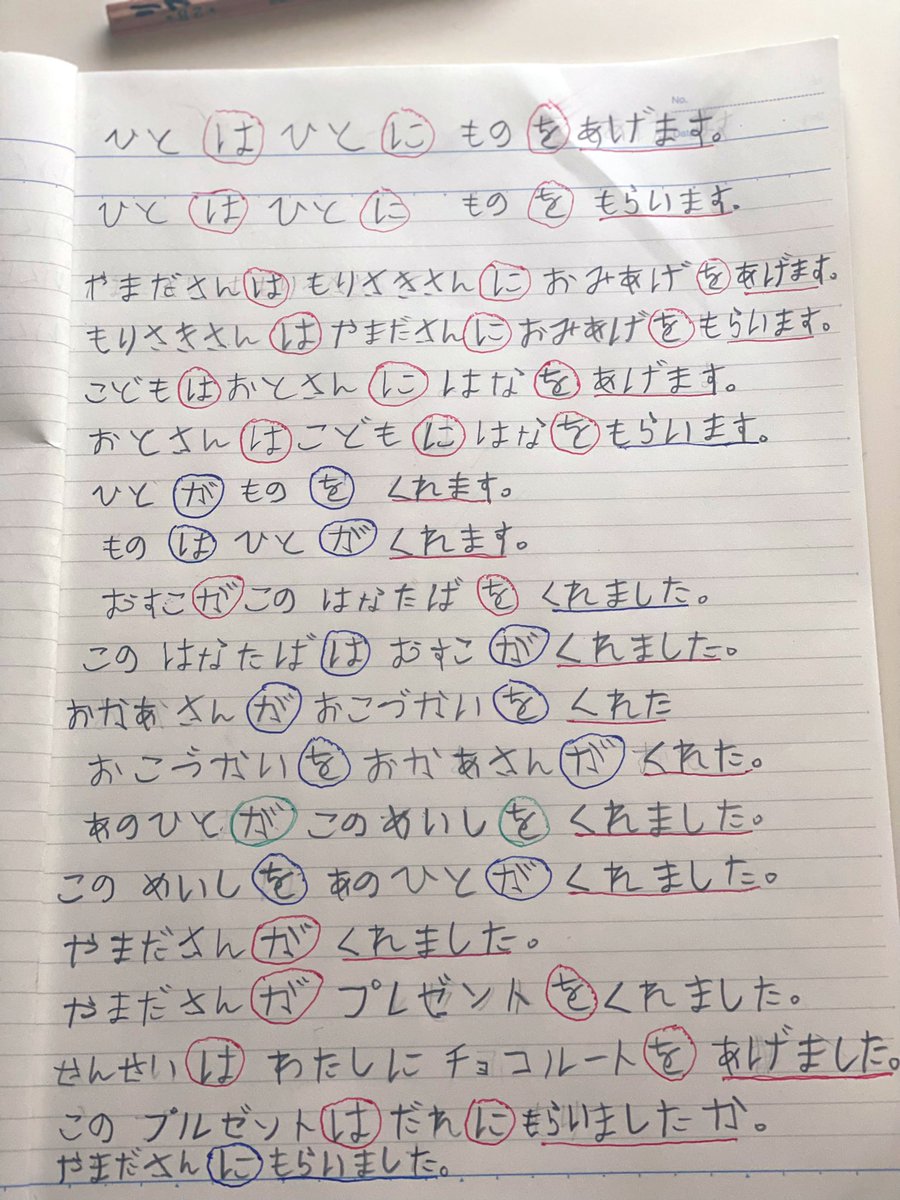 ひと は ひと に もの を あげます。
ひと は ひと に もの を もらいます。
やまださん は もりさきさん に おみあげ を あげます。
もりさきさん は やまださん に おみあげ を もらいます。
こども は おとさん に はな を あげます。
おとさん は こども に はな を もらいます。
ひと が もの を くれます。
もの は ひと が くれます。
おすこ が この はなたば を くれました。
この はなたば は おすこ が くれました。
おかあさん が おこづかい を くれた
おこうかい を おかあさん が くれた。
あのひと が この めいし を くれました。
この めいし を あの ひと が くれました。
やまださん が くれました。
やまださん が プレゼント を くれました。
せんせい は わたしに チョコルート を あげました。
この プルゼント は だれ に もらいましたか。
やまださん に もらいました。